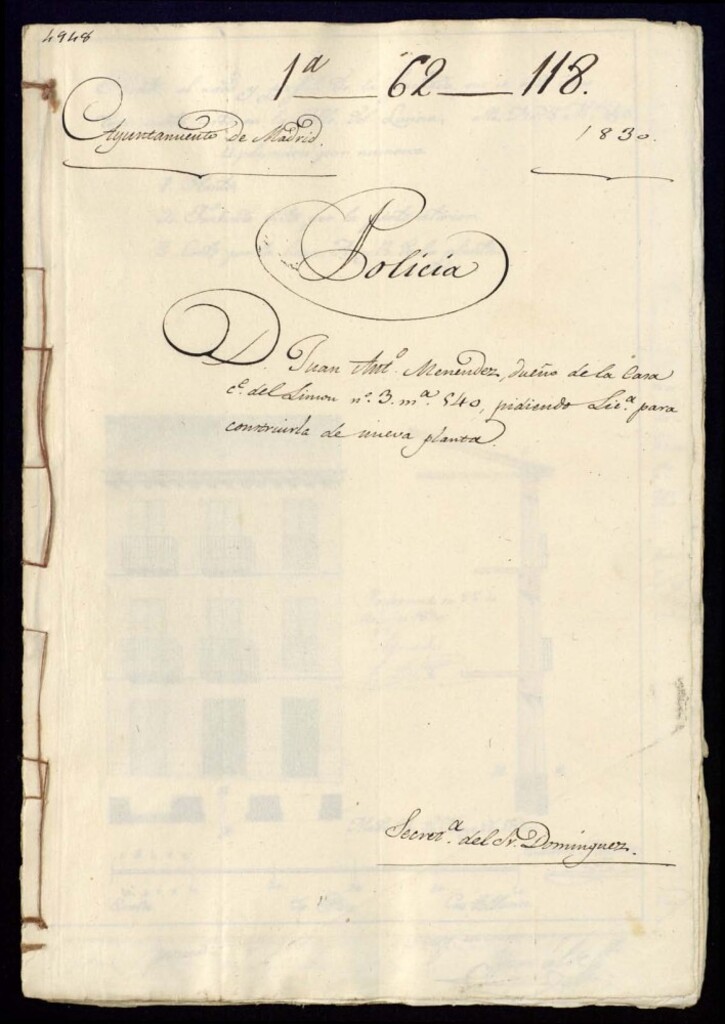 4948
1ª 62 118.
Ayuntamiento de Madrid. 1830.
Policia
D. Juan Antº. Menendez, dueño de la Casa
cª. del Limon nº. 3. mª. 540, pidiendo Licª. para
construirla de nueva planta.
Secretª. del Sr. Dominguez.